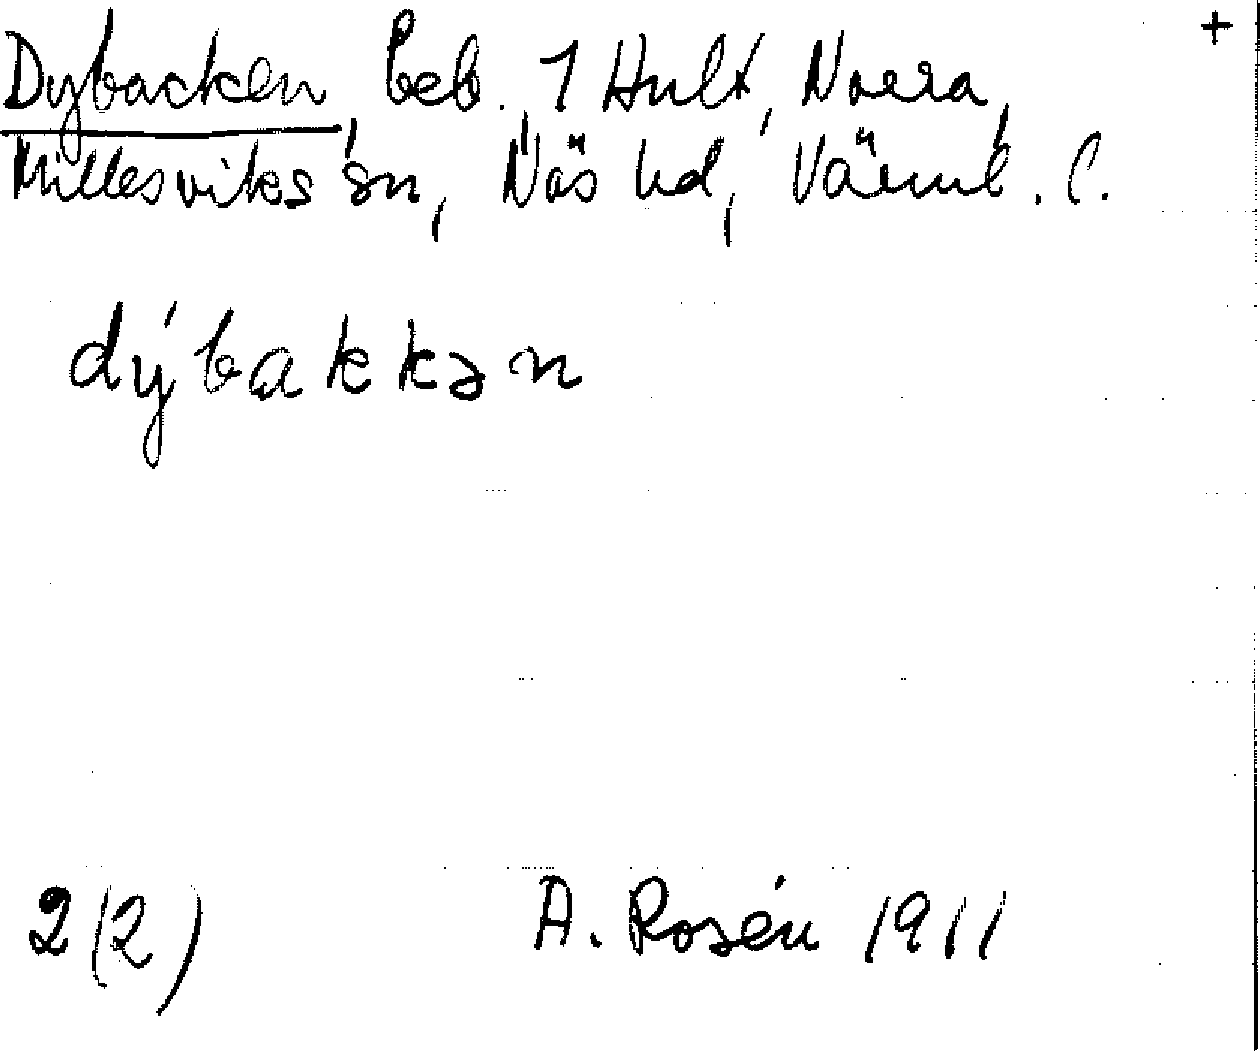 Dybacken, beb. 1 Hult, Norra, +
Millesviks sn, Näs hd, Värml. l.
dýbakkən
2(2) A. Rosén 1911